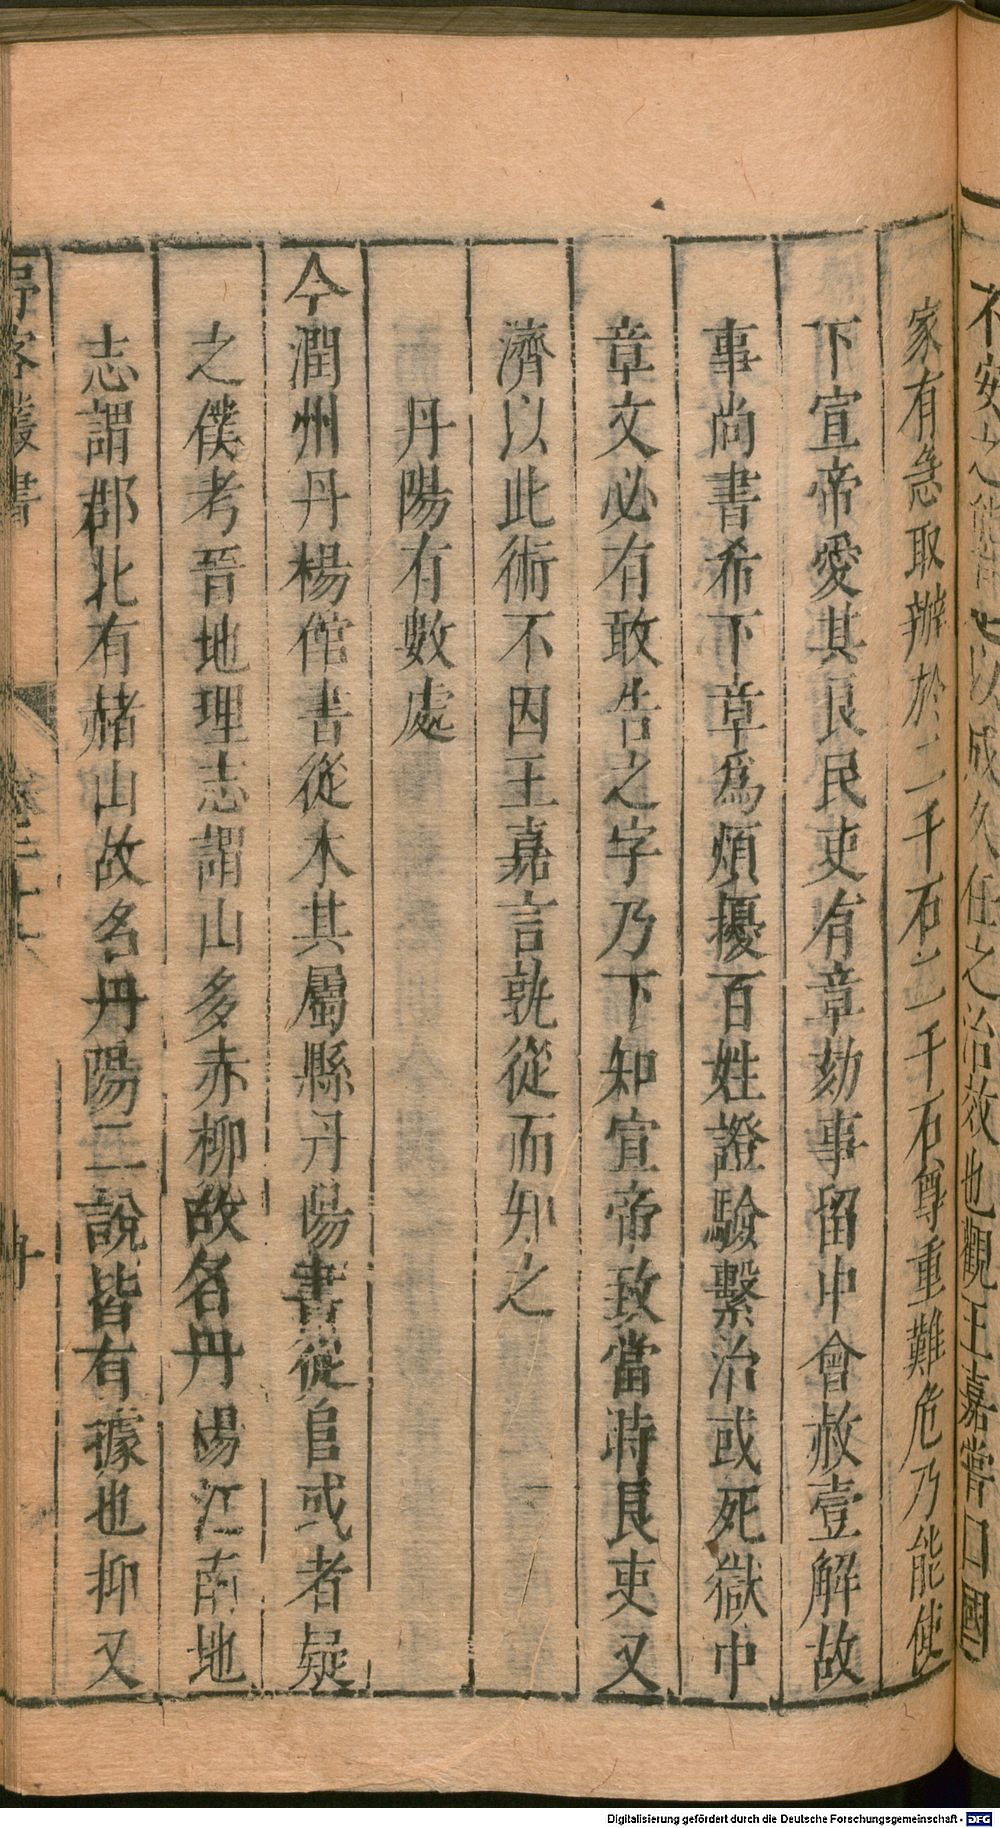 不安之能以成久任之治效也觀王嘉嘗曰國
家有急取辦於二千石二千石尊重難危乃能使
下宣帝愛其良民吏有章劾事留中會赦壹解故
事尚書希下章為煩擾百姓證驗繫治或死獄中
章文必有敢告之字乃下知宣帝致當時良吏又
濟以此術不因王嘉言孰從而知之
丹陽有數處
今潤州丹楊倌書從木其屬縣丹陽書從𨸏或者疑
之僕考晉地理志謂山多赤柳故名丹湯江南地
志謂郡北有赭山故名丹陽二說皆有據也抑又
客叢書
卷二十六
Digitalisierung gefördert durch die Deutsche Forschungsgemeinschaft - DFG